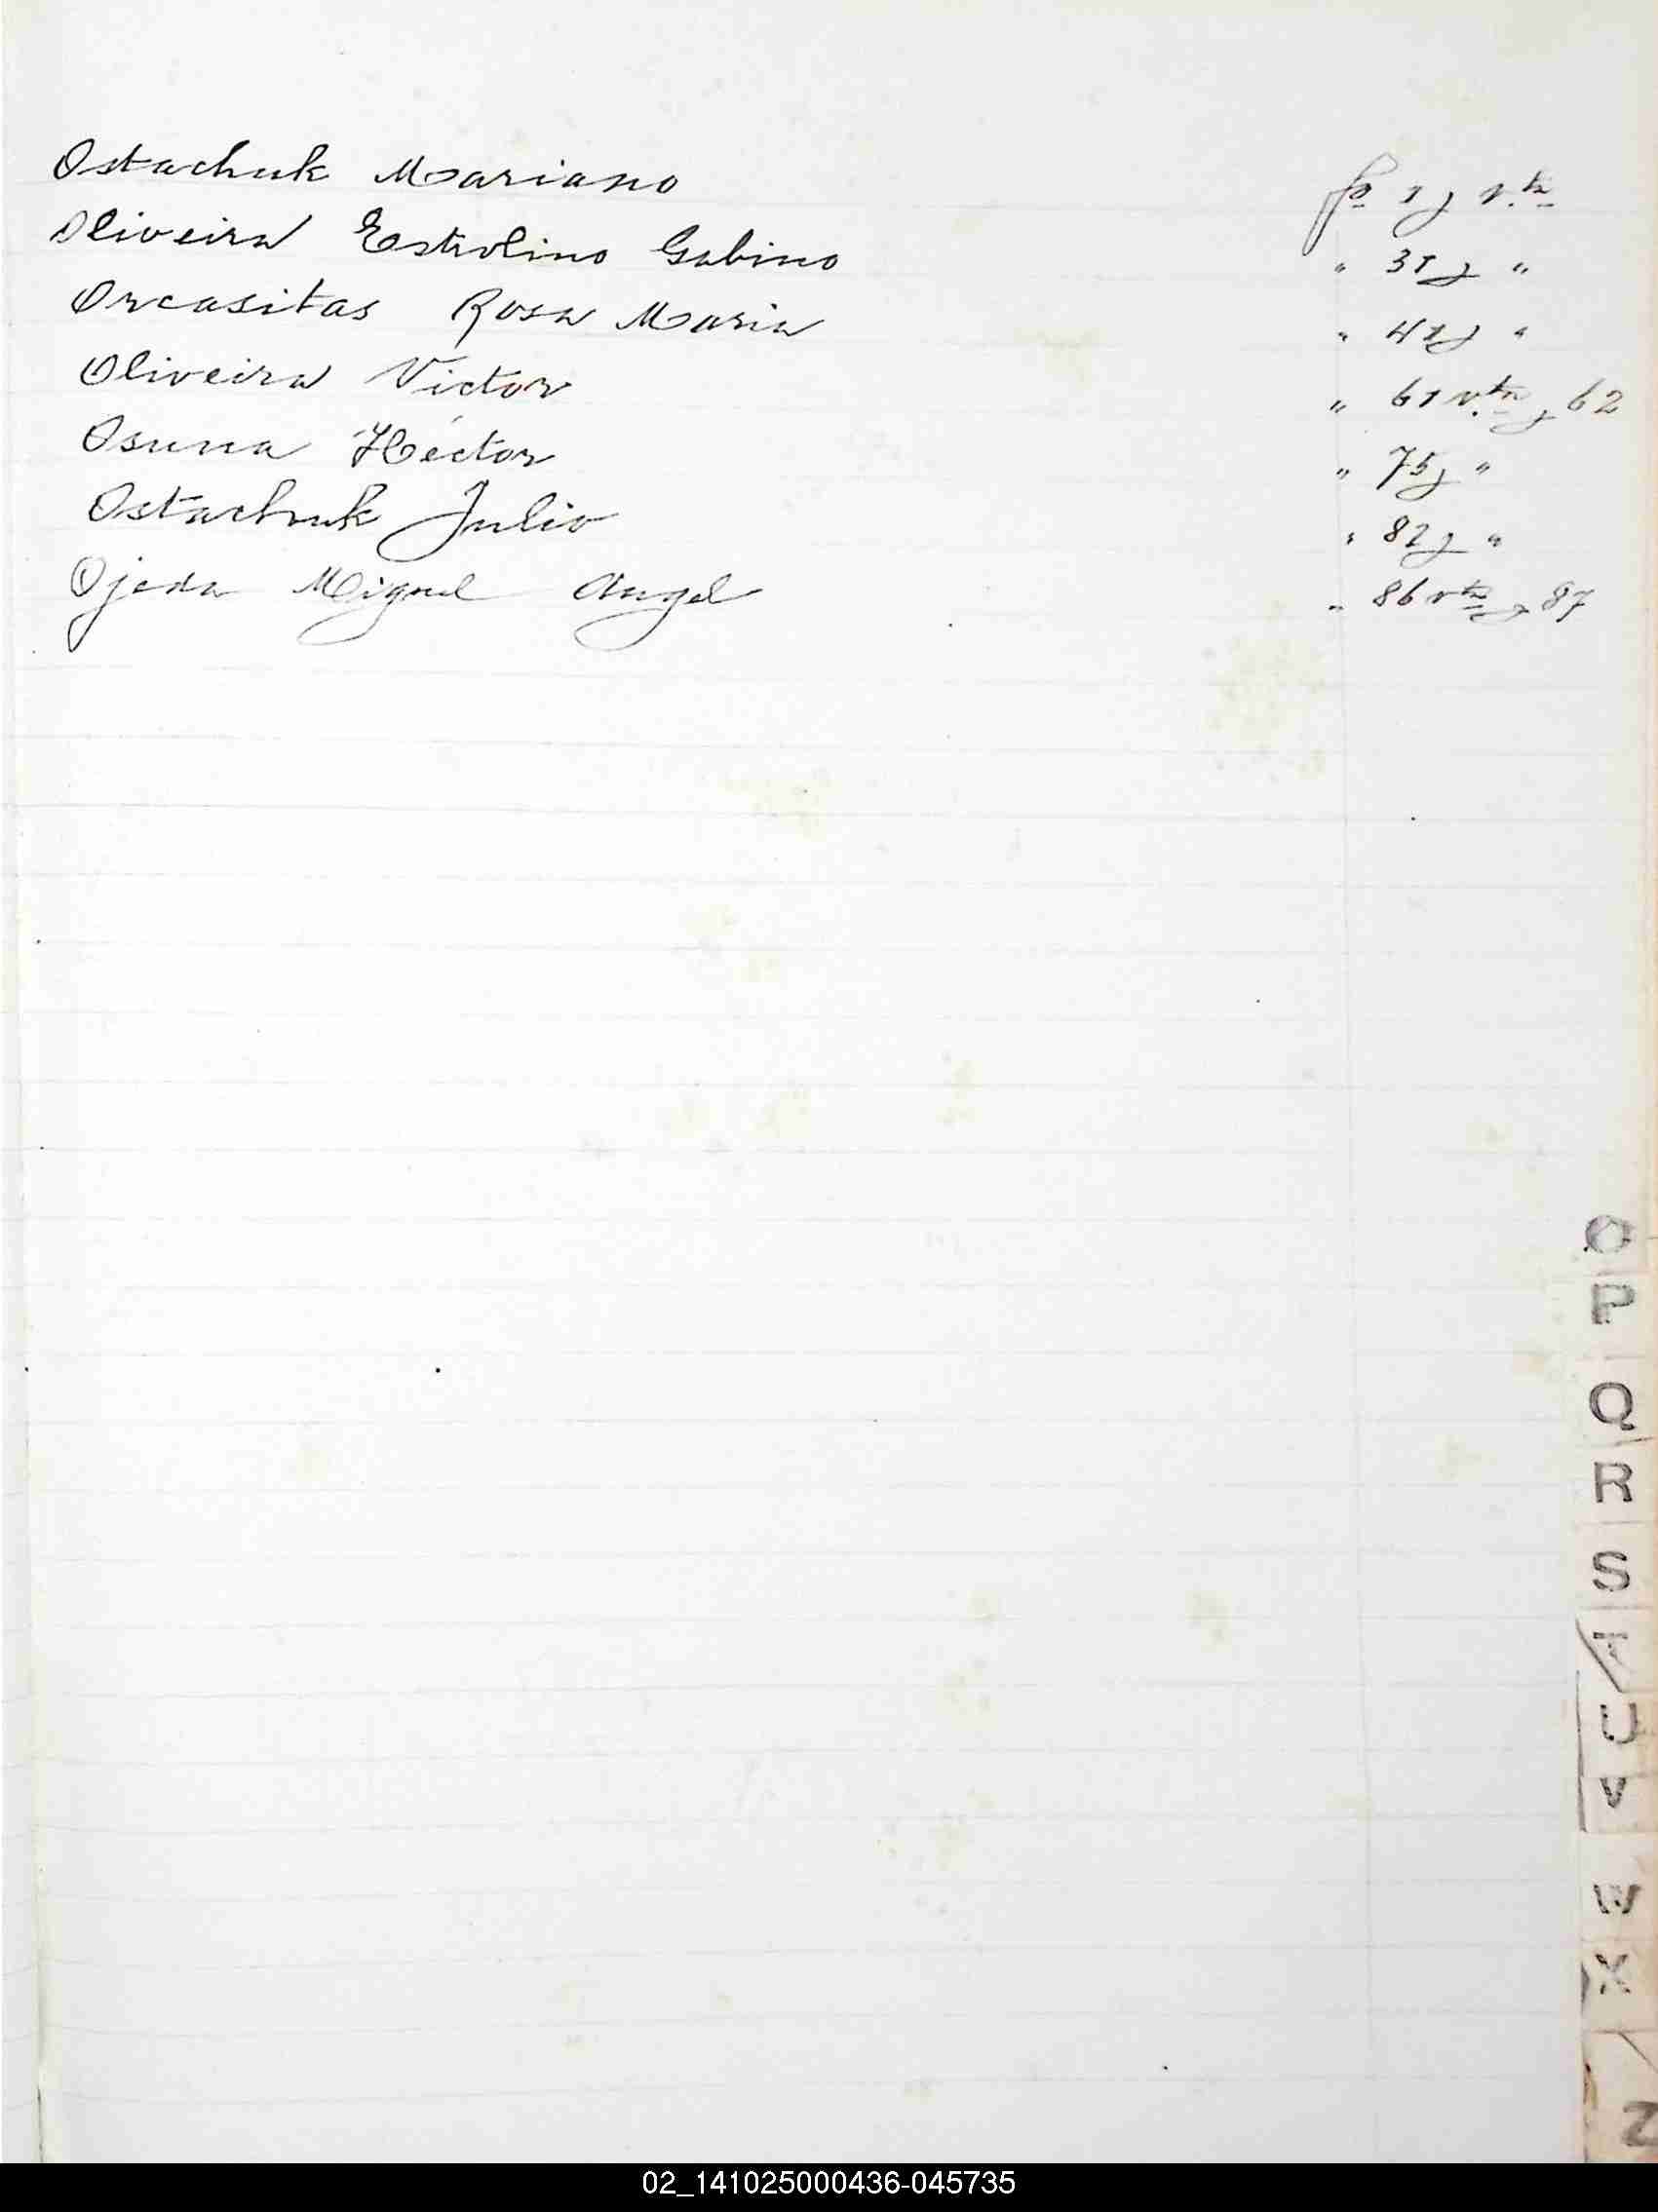 Ostachuk Mariano fº 1 y v.ta
Oliveira Estrolino Gabino " 31 y "
Orcasitas Rosa Maria " 41 y "
Oliveira Victor " 61 v.ta y 62
Osuna Héctor " 75 y "
Ostachuk Julio " 82 y "
Ojeda Miguel Angel " 86 vta y 87
O
P
Q
R
S
T
U
V
W
X
Z
02_141025000436-045735